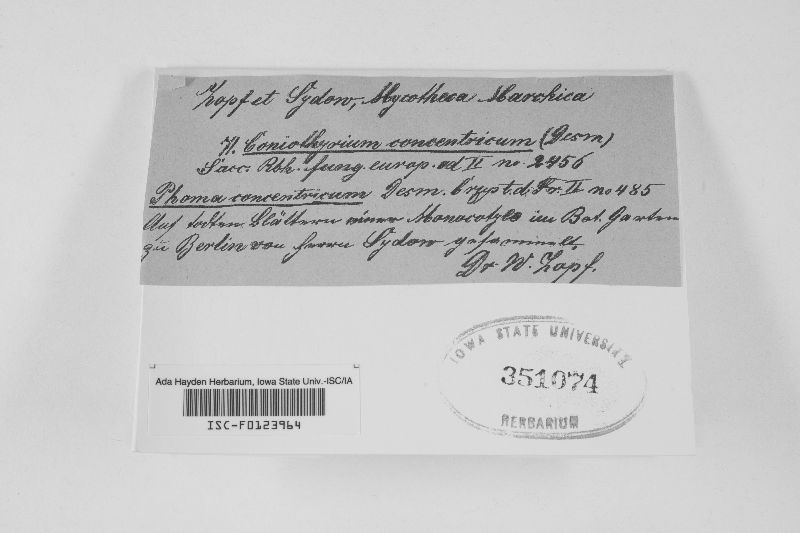 Zopf et Sydow, Mycotheca Marchica
71. Coniothyrium concentricum (Desm)
Sacc. Rbh. fung. europ. ed II no. 2456
Phoma concentricum Desm. Crypt. d. Fr. II no 485
Auf todten Blättern einer Monocotyle im Bot. Garten
zu Berlin von Herrn Sydow gesammelt.
Dr W. Zopf.
IOWA STATE UNIVERSITY
351074
HERBARIUM
Ada Hayden Herbarium, Iowa State Univ.-ISC/IA
ISC-F0123964